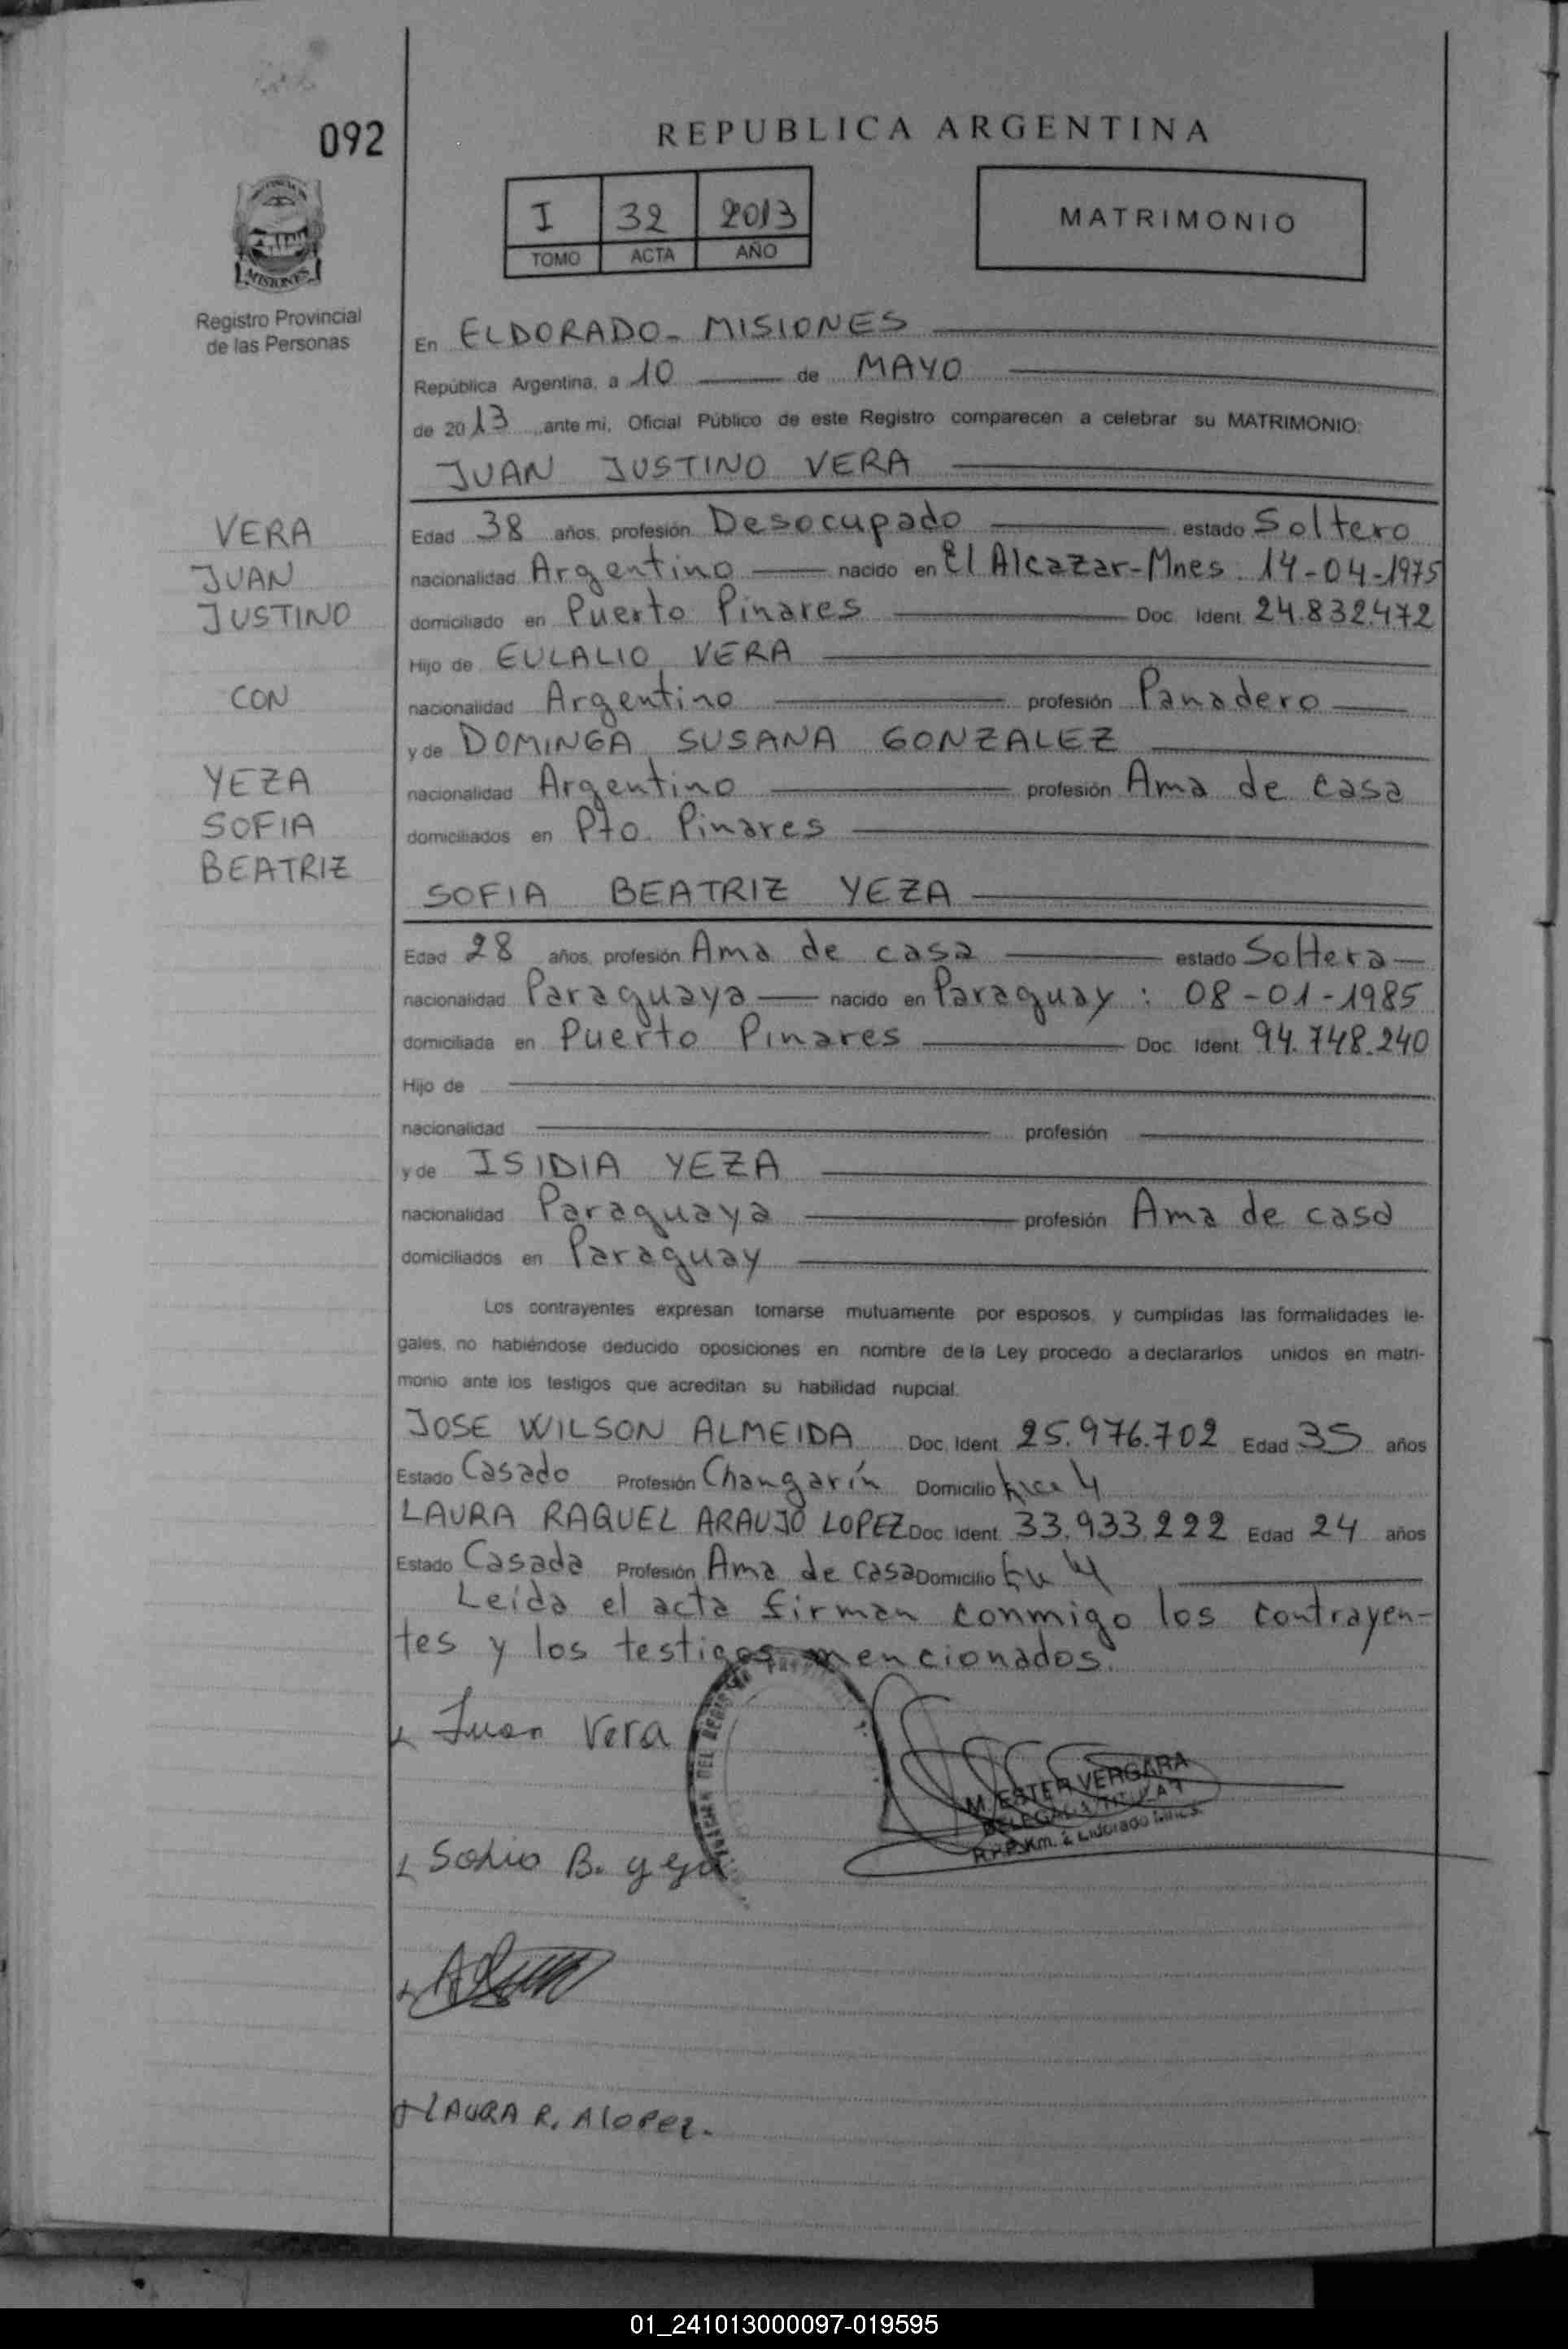 092
REPUBLICA ARGENTINA
I 32 2013
TOMO ACTA AÑO
MATRIMONIO
MISIONES
Registro Provincial
de las Personas
En ELDORADO - MISIONES
República Argentina, a 10 de MAYO
de 2013 ante mi, Oficial Público de este Registro comparecen a celebrar su MATRIMONIO:
JUAN JUSTINO VERA
VERA
JUAN
JUSTINO
CON
YEZA
SOFIA
BEATRIZ
Edad 38 años, profesión Desocupado estado Soltero
nacionalidad Argentino nacido en El Alcazar-Mnes: 14-04-1975
domiciliado en Puerto Pinares Doc. Ident. 24.832.472
Hijo de EULALIO VERA
nacionalidad Argentino profesión Panadero
y de DOMINGA SUSANA GONZALEZ
nacionalidad Argentino profesión Ama de casa
domiciliados en Pto. Pinares
SOFIA BEATRIZ YEZA
Edad 28 años, profesión Ama de casa estado Soltera
nacionalidad Paraguaya nacido en Paraguay : 08-01-1985
domiciliada en Puerto Pinares Doc. Ident. 94.748.240
Hijo de
nacionalidad profesión
y de ISIDIA YEZA
nacionalidad Paraguaya profesión Ama de casa
domiciliados en Paraguay
Los contrayentes expresan tomarse mutuamente por esposos, y cumplidas las formalidades le-
gales, no habiéndose deducido oposiciones en nombre de la Ley procedo a declararlos unidos en matri-
monio ante los testigos que acreditan su habilidad nupcial.
JOSE WILSON ALMEIDA Doc. Ident. 25.976.702 Edad 35 años
Estado Casado Profesión Changarín Domicilio 4
LAURA RAQUEL ARAUJO LOPEZ Doc. Ident. 33.933.222 Edad 24 años
Estado Casada Profesión Ama de casa Domicilio 4
Leída el acta firman conmigo los contrayen-
tes y los testigos mencionados.
Juan Vera
M. ESTER VERGARA
DELEGADA TITULAR
R.P.P. Km. 2 Eldorado Mnes.
B. Yeza
LAURA R. A lopez.
01_241013000097-019595